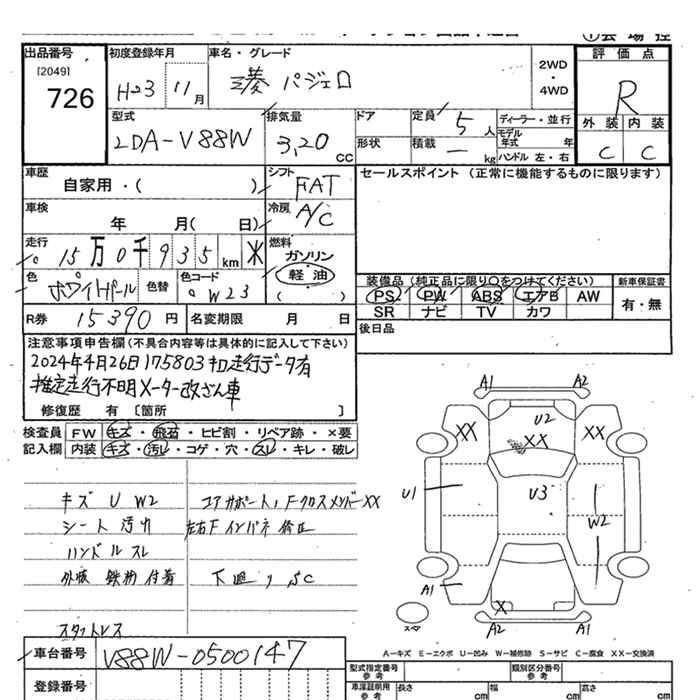 出品番号
[2049]
726
初度登録年月
H23 11月
車名・グレード
三菱 パジェロ
2WD
・
4WD
評価点
R
外装 内装
C C
型式
LDA-V88W
排気量
3,20 CC
ドア
形状
定員 5 人
積載 ― kg
ディーラー・並行
モデル年式 年
ハンドル 左・右
車歴
自家用・( )
シフト
FAT
セールスポイント (正常に機能するものに限ります)
車検
年 月( 日)
冷房
A/C
走行
15万0千935km ※
燃料
ガソリン
軽油
( )
色
ホワイトパール
色替
色コード
W23
装備品(純正品に限り〇をつけてください)
PS PW ABS エアB AW
SR ナビ TV カワ
新車保証書
有・無
R券 15390円
名変期限 月 日
後日品
注意事項申告欄(不具合内容等は具体的に記入して下さい)
2024年4月26日175803キロ走行データ有
推定走行不明メーター改ざん車
修復歴 有 [箇所 ]
検査員 FW キズ・飛石・ヒビ割・リペア跡・×要
記入欄 内装 キズ・汚レ・コゲ・穴・スレ・キレ・破レ
キズ U W2
コアサポート,FクロスメンバーXX
シート 汚れ
左右Fインパネ 修正
ハンドル スレ
外板 鉄粉付着
下廻り,SC
スタットレス
A1 A2
XX U2 XX
XX
U1 U3 W2
A1 X
スペア
A2 A1
A-キズ E-エクボ U-凹み W-補修跡 S-サビ C-腐食 XX-交換済
車台番号 V88W-0500147
登録番号
型式指定番号
参考
類別区分番号
参考
車源証明用
参考
長さ cm
幅 cm
高さ cm